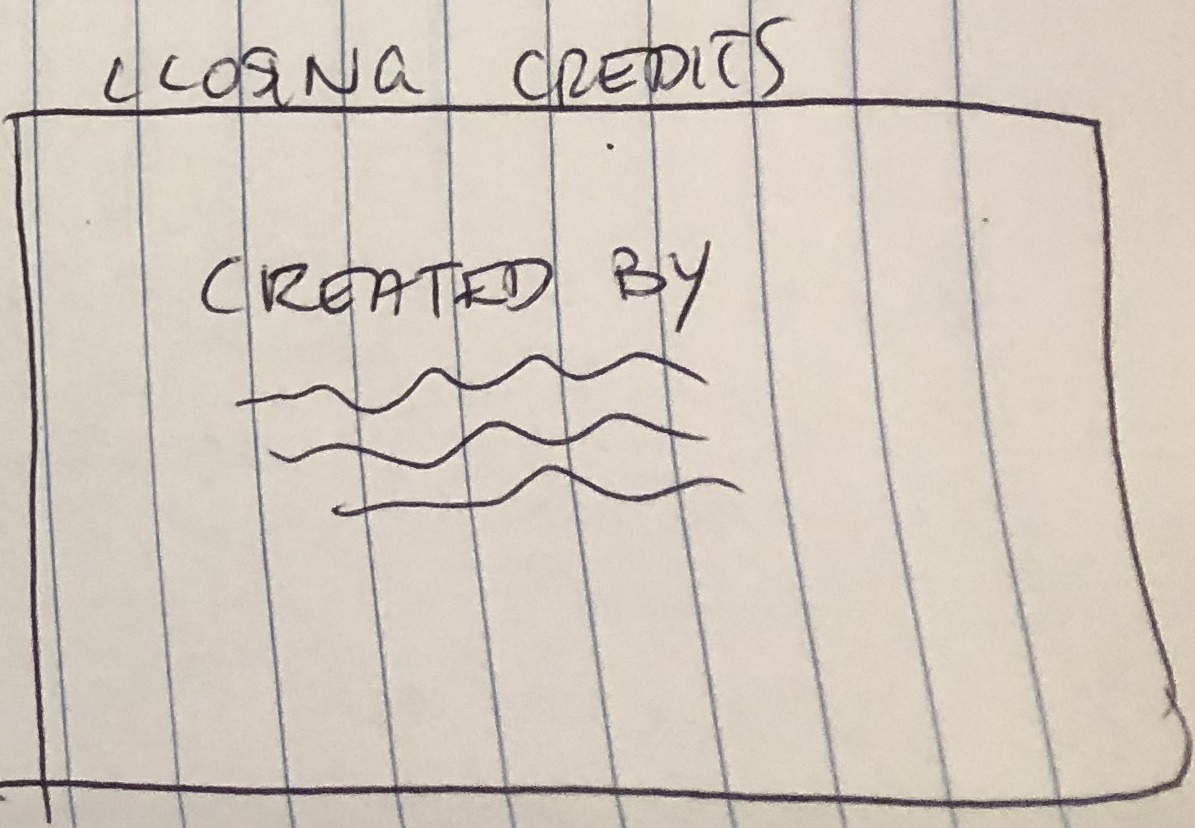 CLOSING CREDITS
CREATED BY